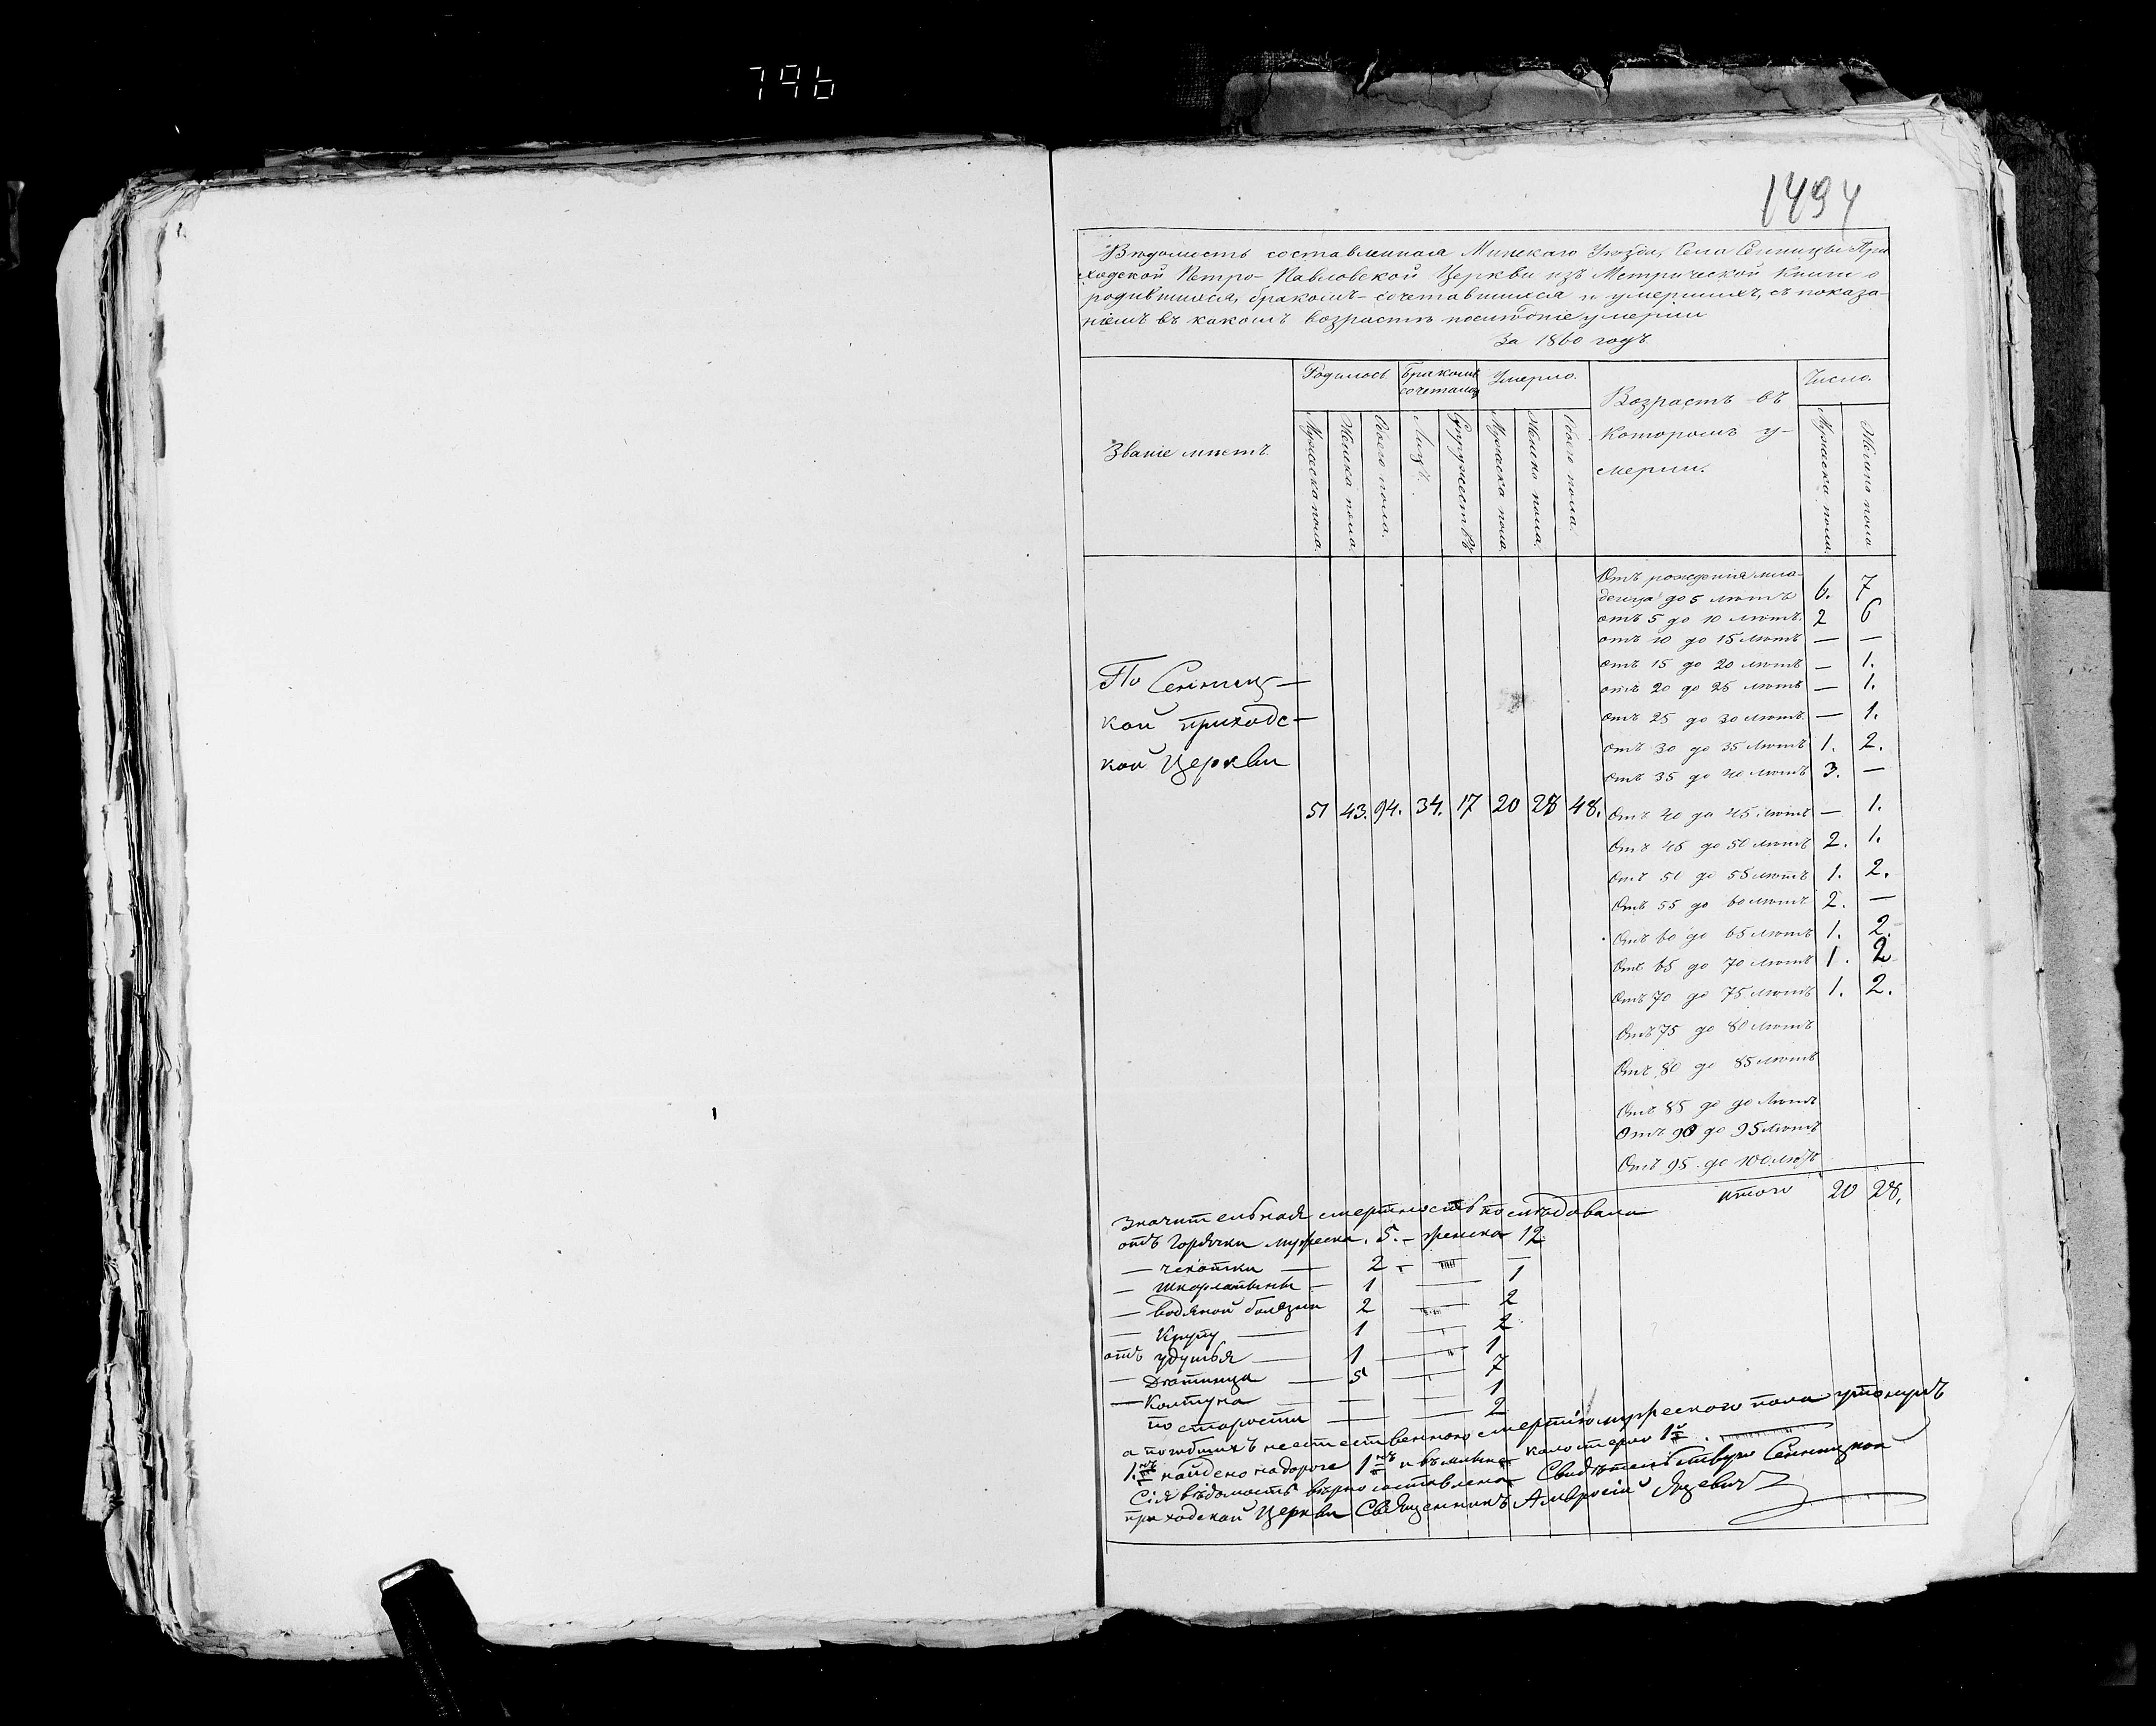 796
1494
Вѣдомость составленная Минскаго Уѣзда, Села Сенницы При-
ходской Петро-Павловской Церкви изъ Метрической Книги о
родившихся, бракомъ-сочетавшихся и умершихъ, съ показа-
ніемъ въ какомъ возрастѣ послѣдніе умерли
За 1860 годъ
Званіе мѣстъ.
Родилось
Мужеска пола.
Женска пола.
Обоего пола.
Бракомъ сочеталось
Лицъ.
Супружествъ
Умерло.
Мужеска пола.
Женска пола.
Обоего пола.
Возрастъ въ
которомъ у-
мерли.
Число.
Мужеска пола.
Женска пола
По Сенниц-
кой приходс-
кой Церкви
51 43. 94. 34. 17 20 28 48.
Отъ рожденія мла-
денца до 5 лѣтъ 6. 7
отъ 5 до 10 лѣтъ. 2 6
отъ 10 до 15 лѣтъ — —
отъ 15 до 20 лѣтъ — 1.
отъ 20 до 25 лѣтъ — 1.
отъ 25 до 30 лѣтъ. — 1.
отъ 30 до 35 лѣтъ 1. 2.
отъ 35 до 40 лѣтъ 3. —
Отъ 40 до 45 лѣтъ — 1.
Отъ 45 до 50 лѣтъ 2. 1.
Отъ 50 до 55 лѣтъ 1. 2.
Отъ 55 до 60 лѣтъ 2. —
Отъ 60 до 65 лѣтъ 1. 2.
Отъ 65 до 70 лѣтъ 1. 2
Отъ 70 до 75 лѣтъ 1. 2.
Отъ 75 до 80 лѣтъ
Отъ 80 до 85 лѣтъ
Отъ 85 до 90 лѣтъ
Отъ 90 до 95 лѣтъ
Отъ 95 до 100 лѣтъ
итого 20 28.
Значительная смертность послѣдовала
отъ Горячки мужеска. 5. — женска 12
— чехотки — 2 — —
— шкорлатины — 1 — 1
— водяной болѣзни 2 — 2
— Крупу — 1 — 2
отъ удушья — 1 — 1
— Дѣтинца — 5 — 7
— Колтуна — — 1
по старости — — 2
а погибшихъ неестественною смертію мужескаго пола утонулъ
1. найдено на дорогѣ 1 и въ 1
Сія вѣдомость вѣрно составлена Свидѣтельствую Сенницкой
приходской Церкви Священникъ Амвросій Яцевич